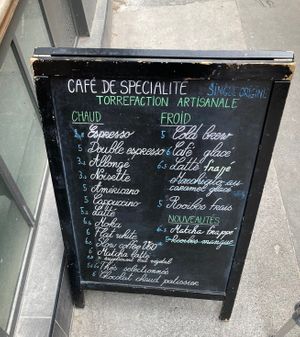 CAFÉ DE SPÉCIALITÉ
SINGLE ORIGIN
TORREFACTION ARTISANALE
CHAUD
Espresso
5 Double espresso
Allongé
Noisette
5 Américano
Cappuccino
Latte
Moka
Flat white
Slow coffee V60
Matcha latte
supplément lait végétal
Thés sélectionnés
Chocolat chaud patissier
FROID
5 Cold brew
6 Café glacé
Latté frappé
Macchiato au
caramel glacé
5 Rooibos frais
NOUVEAUTÉS
Matcha frappé
Rooibos mangue